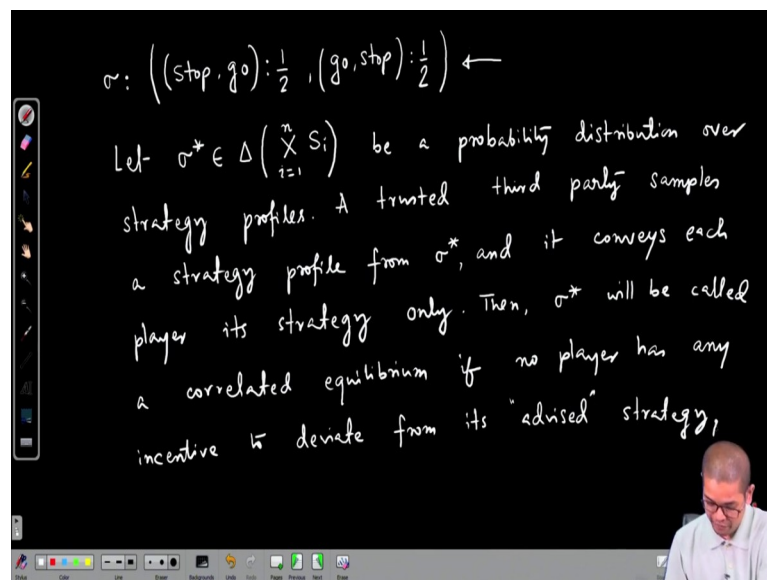 σ: ((stop, go): 1/2, (go, stop): 1/2) ←
Let σ* ∈ Δ(×_{i=1}^{n} S_i) be a probability distribution over
strategy profiles. A trusted third party samples
a strategy profile from σ*, and it conveys each
player its strategy only. Then, σ* will be called
a correlated equilibrium if no player has any
incentive to deviate from its "advised" strategy,
Stylus Color Line Eraser Backgrounds Undo Redo Pages Previous Next Erase